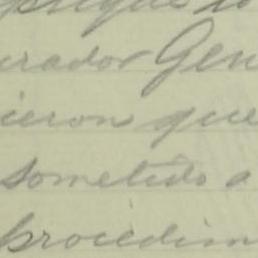 urador Gen
ieron que
sometido a
procedim